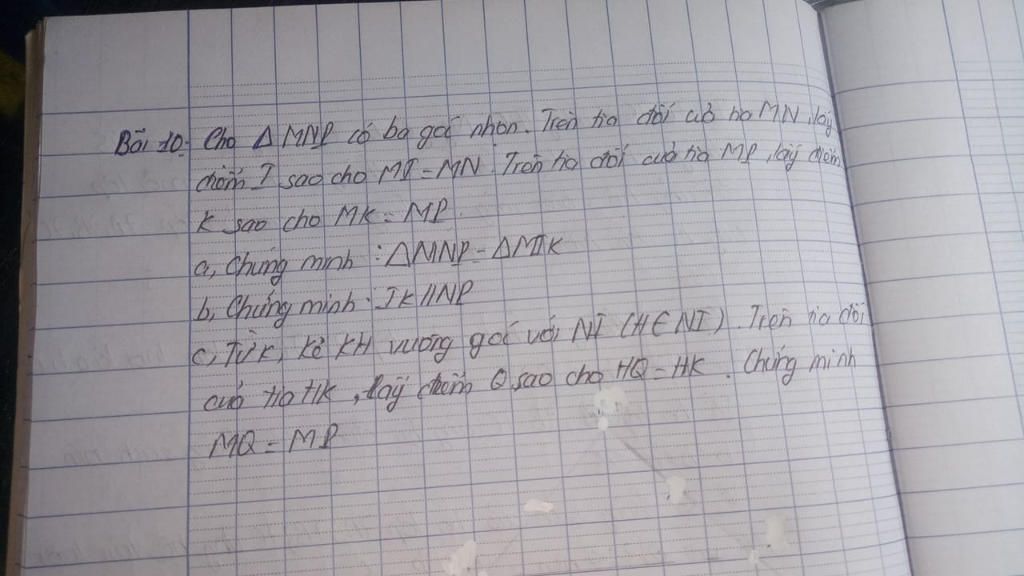 Bài 10: Cho ΔMNP có ba góc nhọn. Trên tia đối của tia MN, lấy
điểm I sao cho MI = MN. Trên tia đối của tia MP, lấy điểm
K sao cho MK = MP.
a, Chứng minh : ΔMNP = ΔMIK
b, Chứng minh : IK // NP
c, Từ K, kẻ KH vuông góc với NI (H ∈ NI). Trên tia đối
của tia HK, lấy điểm Q sao cho HQ = HK. Chứng minh
MQ = MP